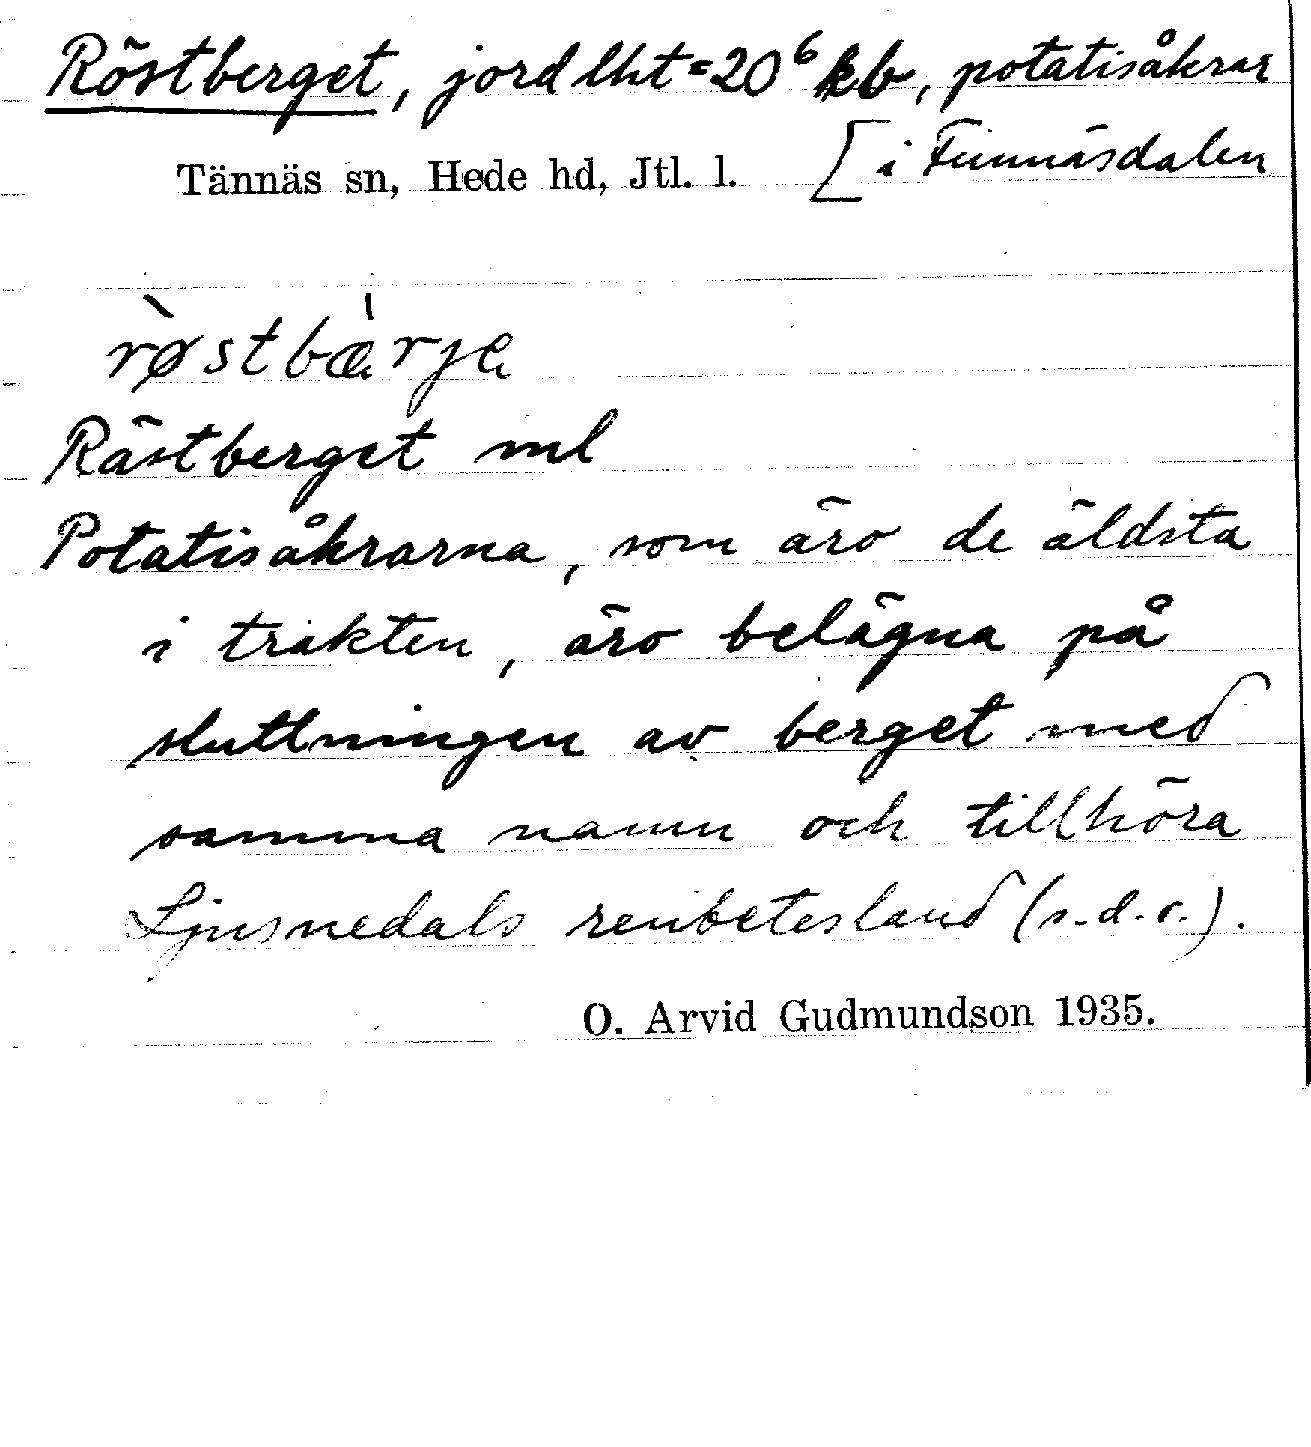 Röstberget, jordlht = 20⁶ kb, potatisåkrar
Tännäs sn, Hede hd, Jtl. l. [i Funnäsdalen
rø̀stbæ̀rje
Rästberget ml
Potatisåkrarna, som äro de äldsta
i trakten, äro belägna på
sluttningen av berget med
samma namn och tillhöra
Ljusnedals renbetesland (s.d.o.).
O. Arvid Gudmundson 1935.